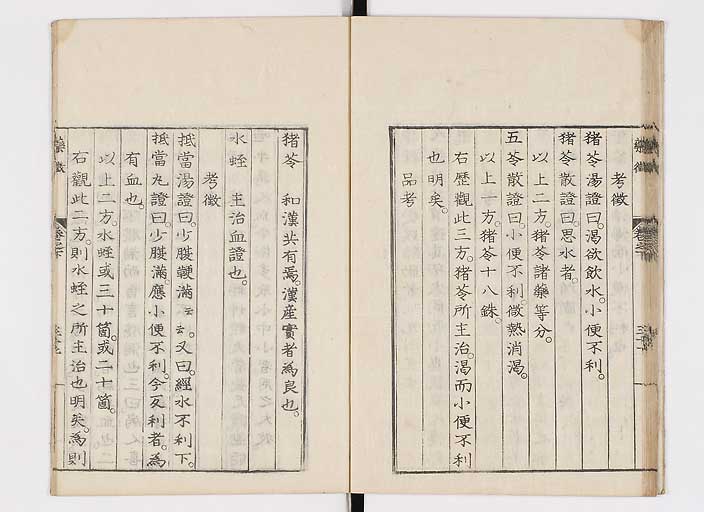 考徵
猪苓湯證曰。渴欲飲水。小便不利。
猪苓散證曰。思水者。
以上二方。猪苓諸藥等分。
五苓散證曰。小便不利。微熱消渴。
以上一方。猪苓十八銖。
右歷觀此三方。猪苓所主治。渴而小便不利
也明矣。
品考
猪苓 和漢共有焉。漢産實者為良也。
水蛭 主治血證也。
考徵
抵當湯證曰。少腹鞕滿云云。又曰。經水不利下。
抵當丸證曰。少腹滿。應小便不利。今反利者。為
有血也。
以上二方。水蛭或三十箇。或二十箇。
右觀此二方。則水蛭之所主治也明矣。為則
藥徵